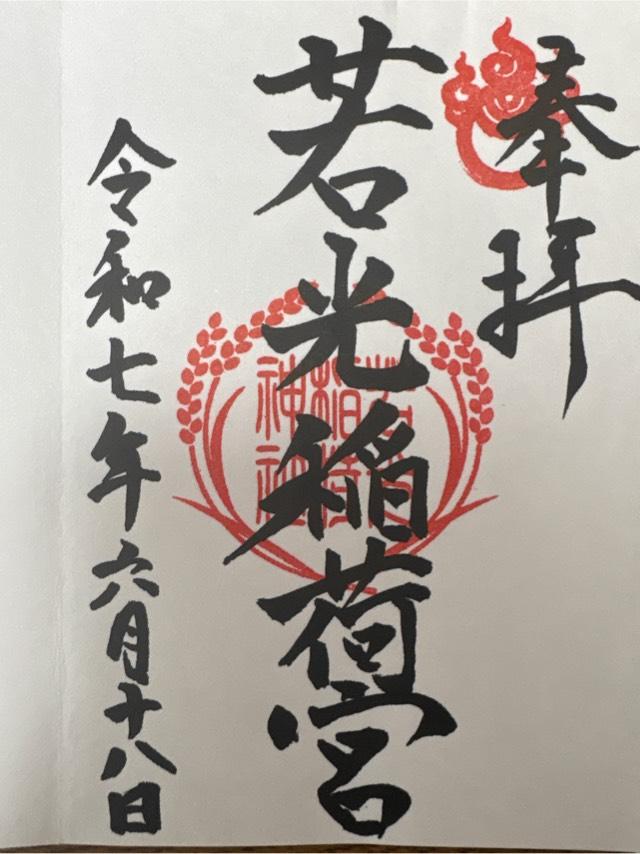 奉拝
若光稲荷宮
令和七年六月十八日